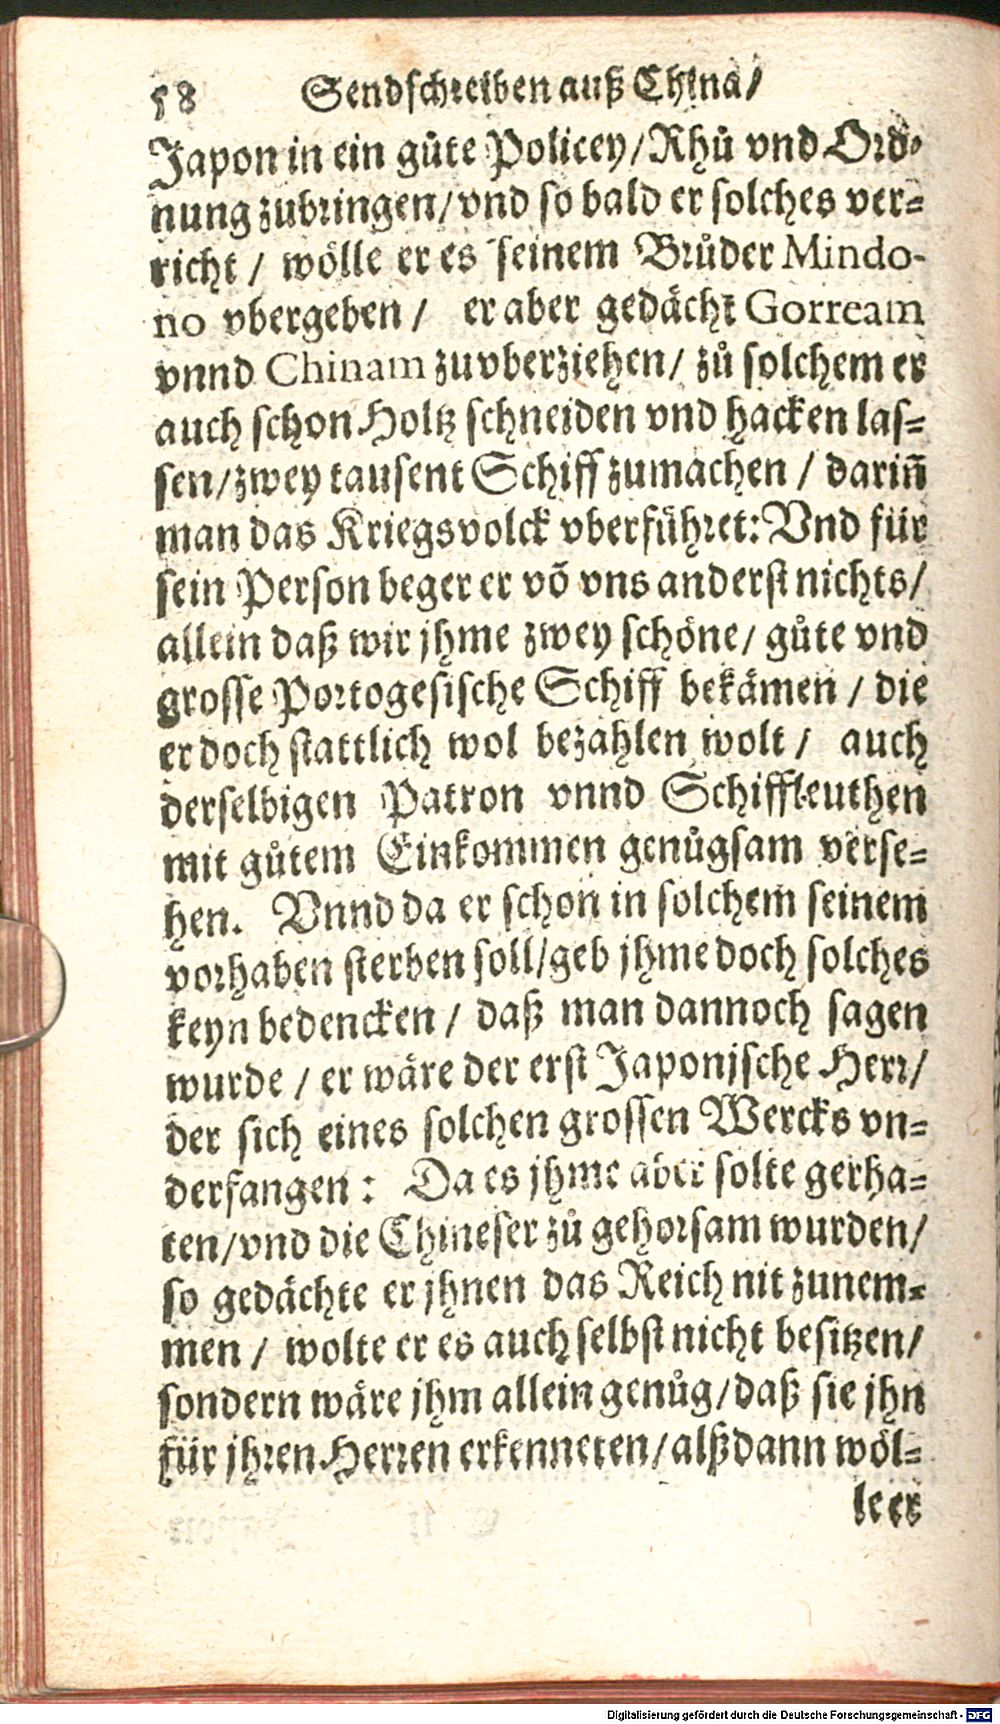 58 Sendschreiben auß China/
Japon in ein gůte Policey/Rhů vnd Ord-
nung zubringen/vnd so bald er solches ver-
richt / wölle er es seinem Brůder Mindo-
no vbergeben / er aber gedächt Gorream
vnnd Chinam zuvberziehen/ zů solchem er
auch schon Holtz schneiden vnd hacken las-
sen/zwey tausent Schiff zumachen / darin̄
man das Kriegsvolck vberführet: Vnd für
sein Person beger er võ vns anderst nichts/
allein daß wir jhme zwey schöne/ gůte vnd
grosse Portogesische Schiff bekämen / die
er doch stattlich wol bezahlen wolt / auch
derselbigen Patron vnnd Schiffleuthen
mit gůtem Einkommen genůgsam verse-
hen. Vnnd da er schon in solchem seinem
vorhaben sterben soll/geb jhme doch solches
keyn bedencken / daß man dannoch sagen
wurde / er wäre der erst Japonjsche Herr/
der sich eines solchen grossen Wercks vn-
derfangen : Da es jhme aber solte gerha-
ten/vnd die Chineser zů gehorsam wurden/
so gedächte er jhnen das Reich nit zunem-
men / wolte er es auch selbst nicht besitzen/
sondern wäre jhm allein genůg/daß sie jhn
für jhren Herren erkenneten/alßdann wöl-
le er
Digitalisierung gefördert durch die Deutsche Forschungsgemeinschaft - DFG